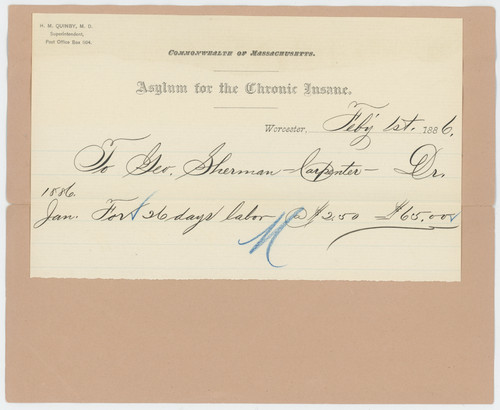 H. M. QUINBY, M. D.
Superintendent,
Post Office Box 1164.
COMMONWEALTH OF MASSACHUSETTS.
Asylum for the Chronic Insane.
Worcester, Feb'y 1st. 1886.
To Geo. Sherman - Carpenter - Dr.
1886
Jan. For 26 days labor @ $2.50 $65.00